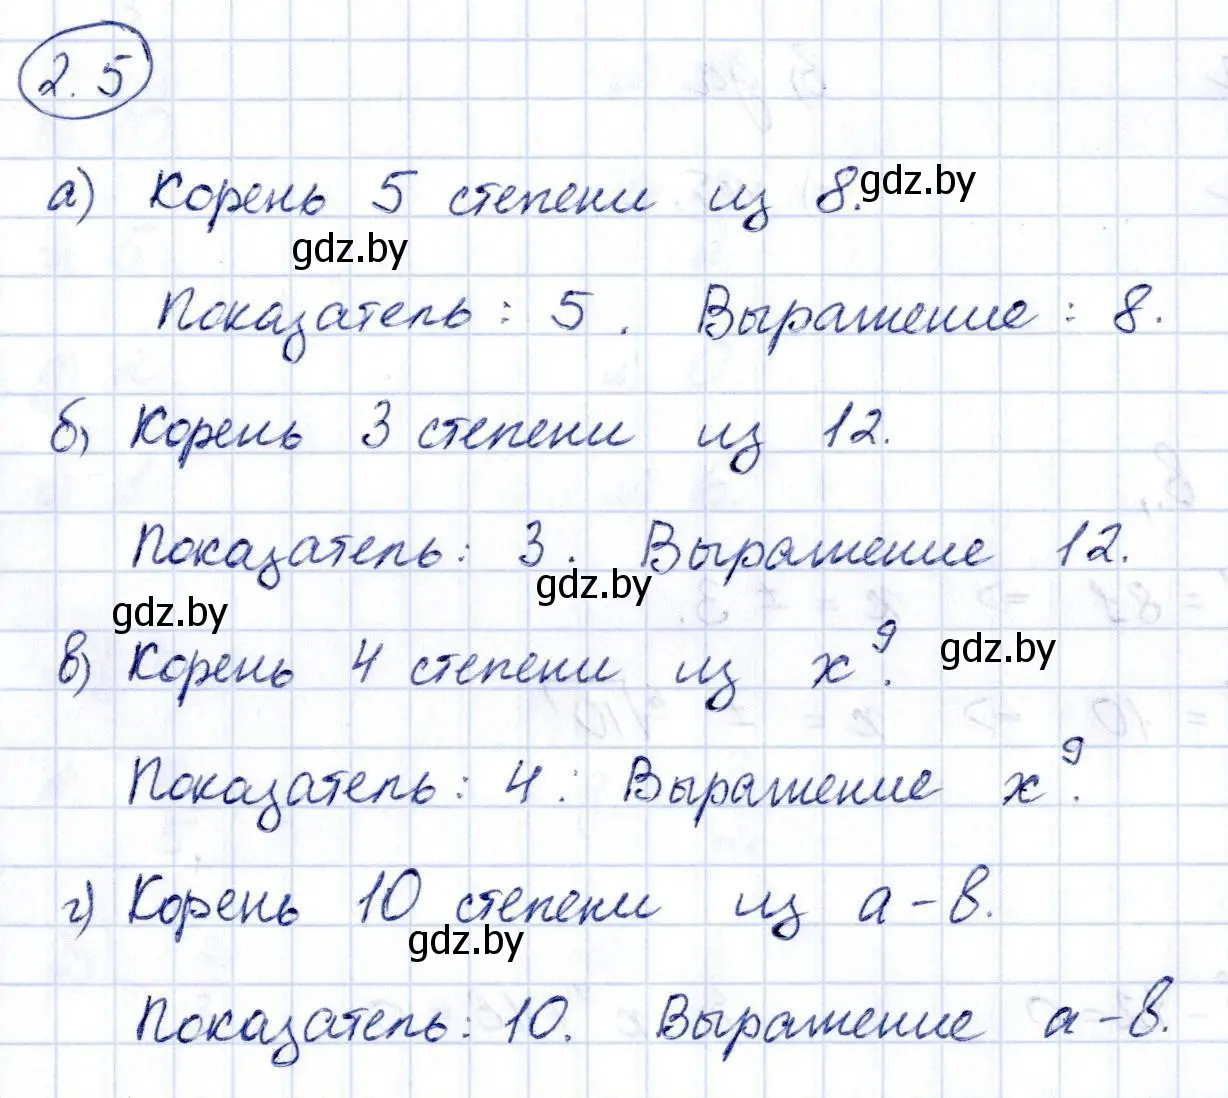 2.5
а) Корень 5 степени из 8. gdz.by
gdz.by
Показатель: 5. Выражение: 8.
б) Корень 3 степени из 12.
Показатель: 3. Выражение 12.
gdz.by
gdz.by
в) Корень 4 степени из x⁹. gdz.by
Показатель: 4. Выражение x⁹.
г) Корень 10 степени из a-b.
gdz.by
Показатель: 10. Выражение a-b.